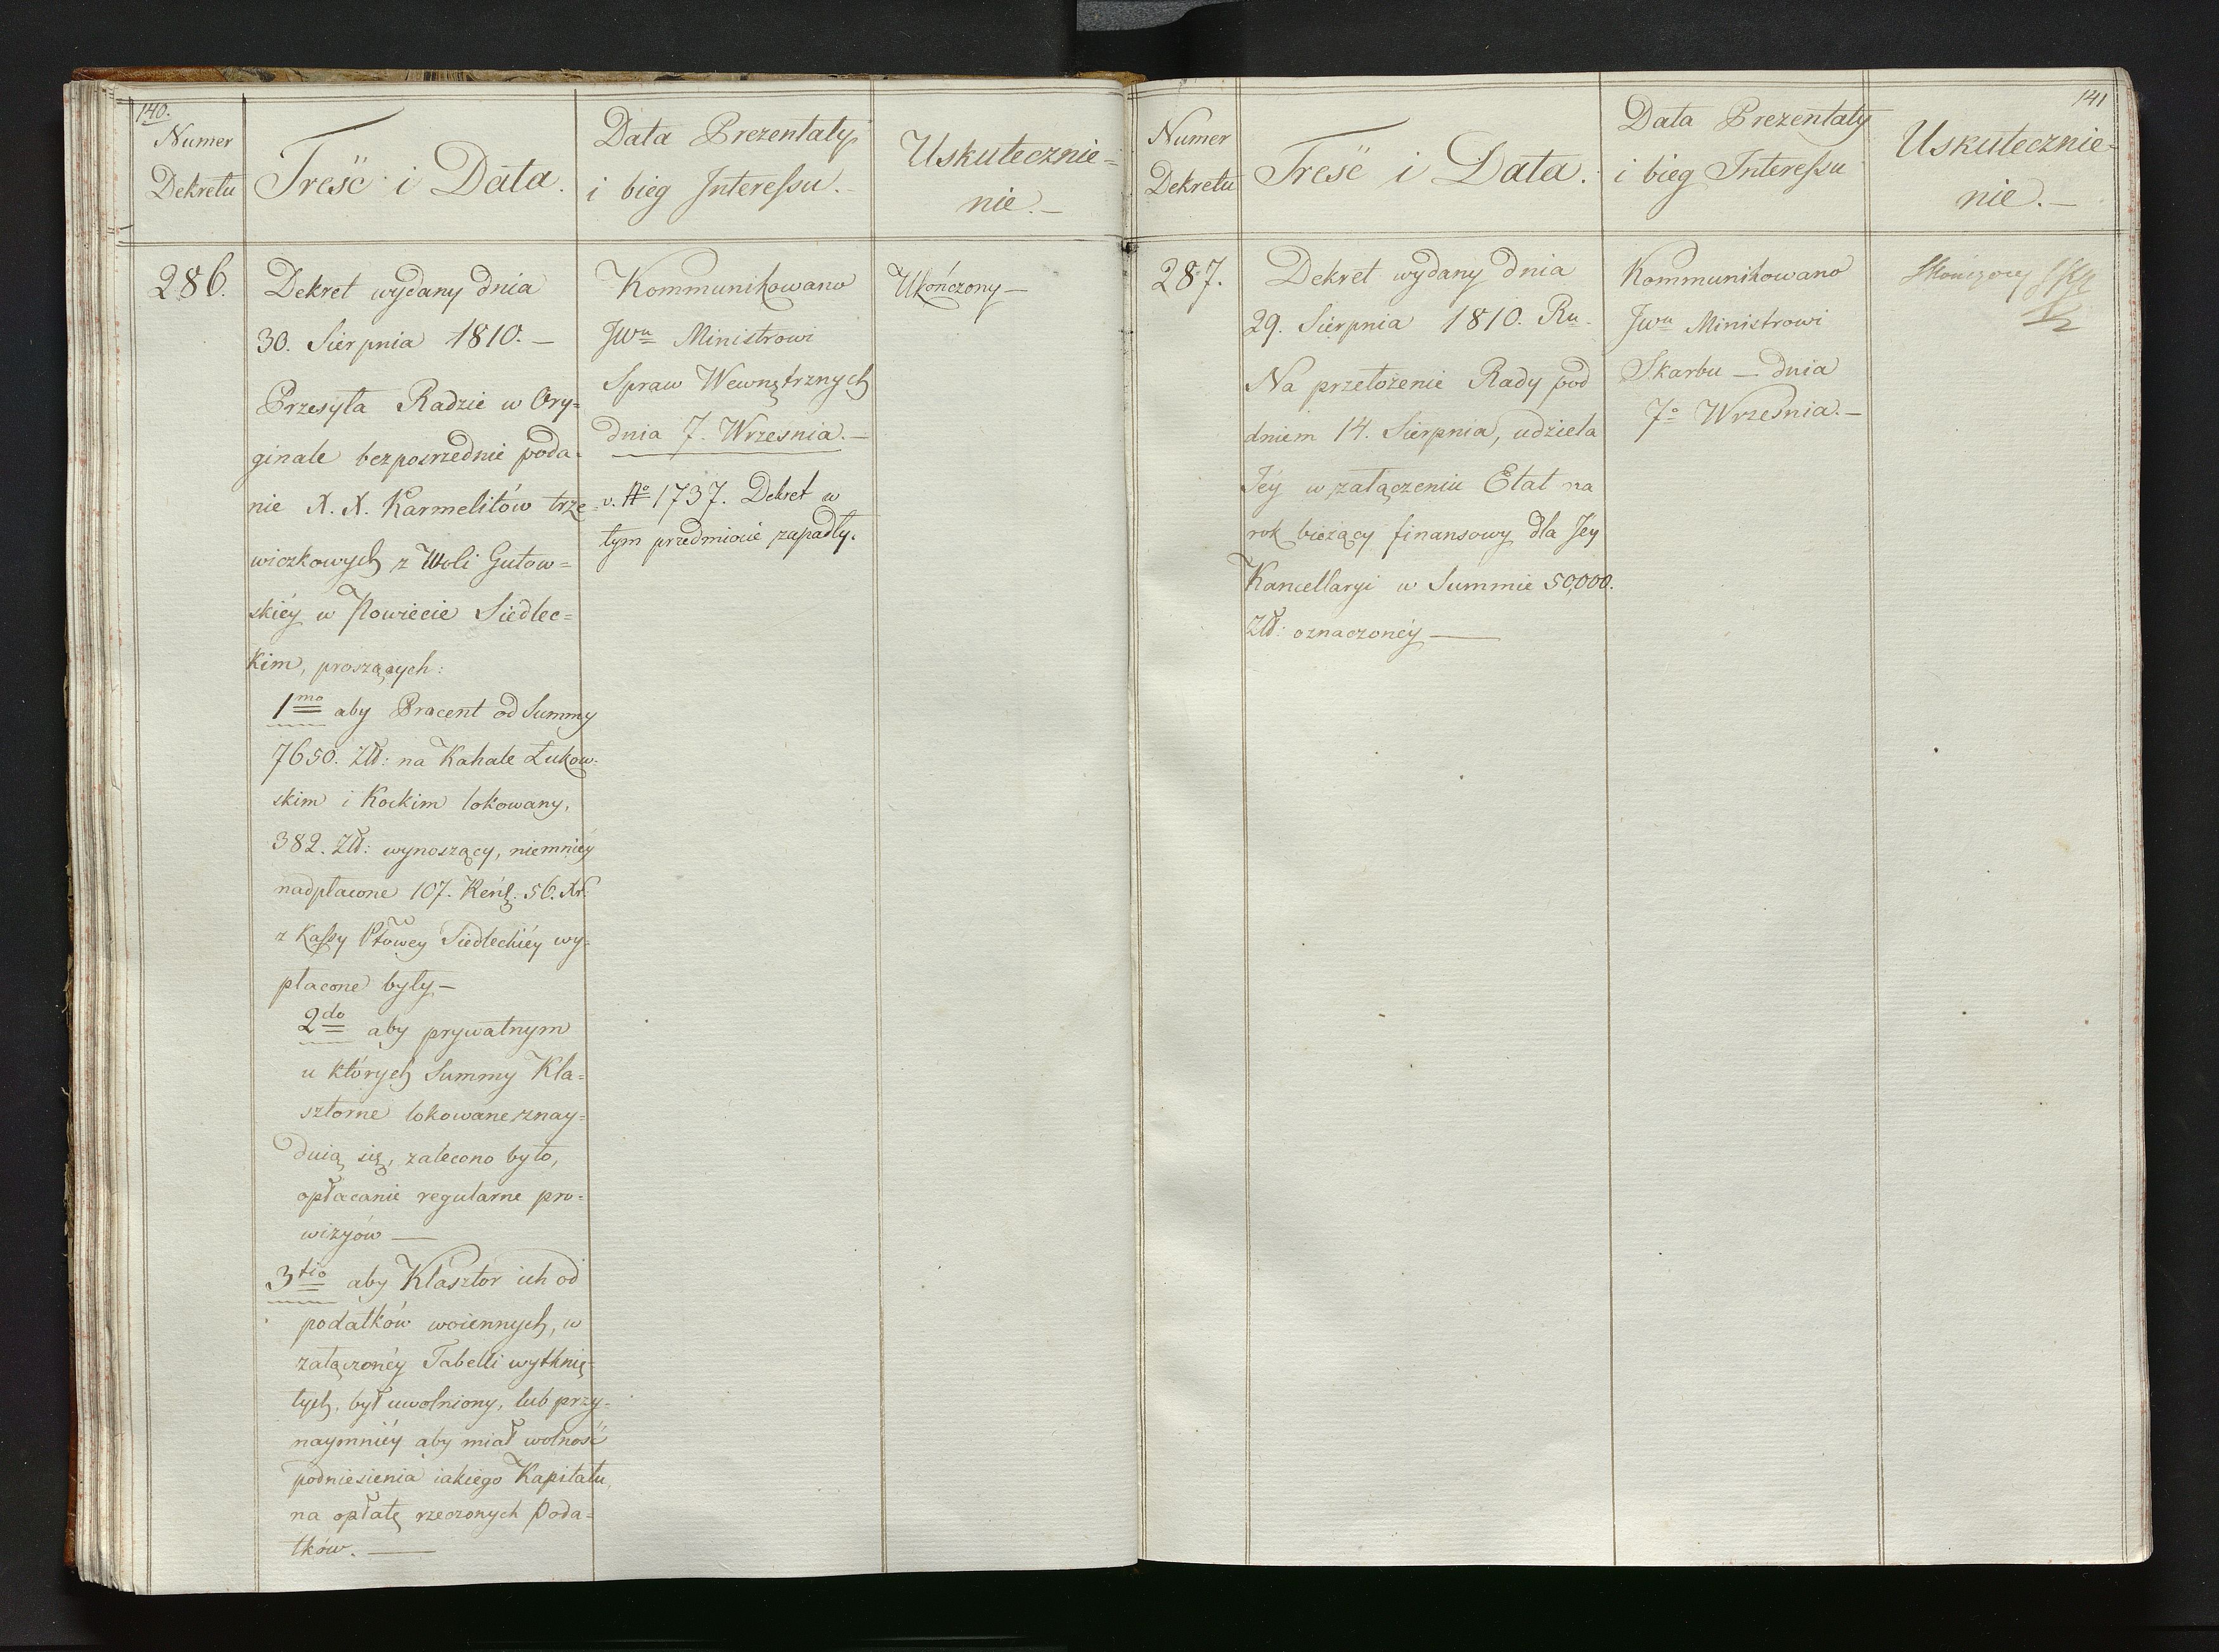 140.
Numer
Dekretu
Treść i Data.
Data Prezentaty
i bieg Interessu.
Uskutecznie=
nie.—
286.
Dekret wydany dnia
30. Sierpnia 1810.—
Przesyła Radzie w Ory=
ginale bezposrzednie poda=
nie X. X. Karmelitów trze=
wiczkowych z Woli Gutow=
skiéy w Powiecie Siedlec=
kim, proszących:
1mo aby Procent od Summy
7650. Złł: na Kahale Łukow=
skim i Kockim lokowany,
382. Złł: wynoszący, niemniéy
nadpłacone 107. Reńs. 56. Xr.
z Kassy Ptowey Siedleckiéy wy=
płacone były—
2do aby prywatnym
u których Summy Kla=
sztorne lokowane znay=
duią się, zalecono było,
opłacanie regularne pro=
wizyów—
3tio aby Klasztor ich od
podatków woiennych, w
załączonéy Tabelli wytknię=
tych, był uwolniony, lub przy=
naymniéy aby miał wolność
podniesienia iakiego Kapitału,
na opłatę rzeczonych Poda=
tków.—
Kommunikowano
JWu Ministrowi
Spraw Wewnętrznych
dnia 7. Wrzesnia.—
v. No 1737. Dekret w
tym przedmiocie zapadły.
Ukończony—
141
Numer
Dekretu
Treść i Data.
Data Prezentaty
i bieg Interessu
Uskutecznie=
nie.—
287.
Dekret wydany dnia
29. Sierpnia 1810. Ru.
Na przełożenie Rady pod
dniem 14. Sierpnia, udziela
Jéy w załączeniu Etat na
rok bieżący finansowy dla Jey
Kancellaryi w Summie 50,000.
Złł: oznaczonéy—
Kommunikowano
JWu Ministrowi
Skarbu — dnia
7o Wrzesnia.—
Skończony